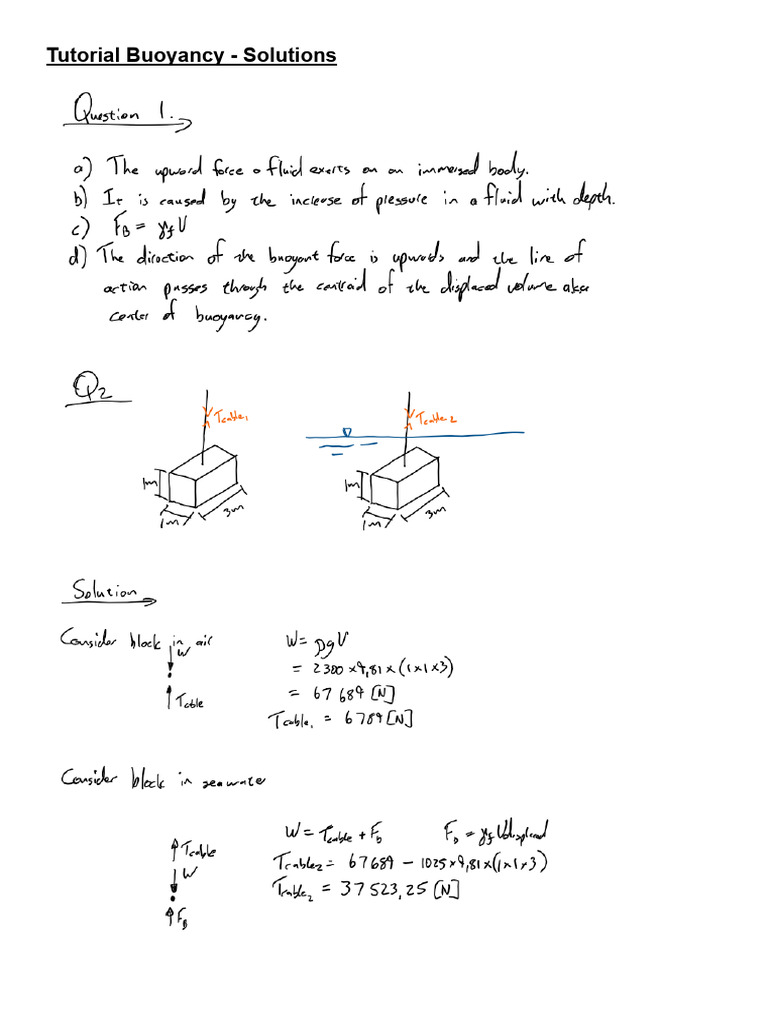 Tutorial Buoyancy - Solutions
Question 1.
a) The upward force a fluid exerts on an immersed body.
b) It is caused by the increase of pressure in a fluid with depth.
c) F_B = γ_f V
d) The direction of the buoyant force is upwards and the line of
action passes through the centroid of the displaced volume aka
center of buoyancy.
Q2
Tcable1
Tcable2
1m
1m
3m
1m
1m
3m
Solution
Consider block in air
W
Tcable
W = ρgV
= 2300 × 9,81 × (1×1×3)
= 67 689 [N]
Tcable1 = 6789 [N]
Consider block in seawater
Tcable
W
F_B
W = Tcable + F_b F_b = γ_f Vdisplaced
Tcable2 = 67689 – 1025 × 9,81 × (1×1×3)
Tcable2 = 37523,25 [N]